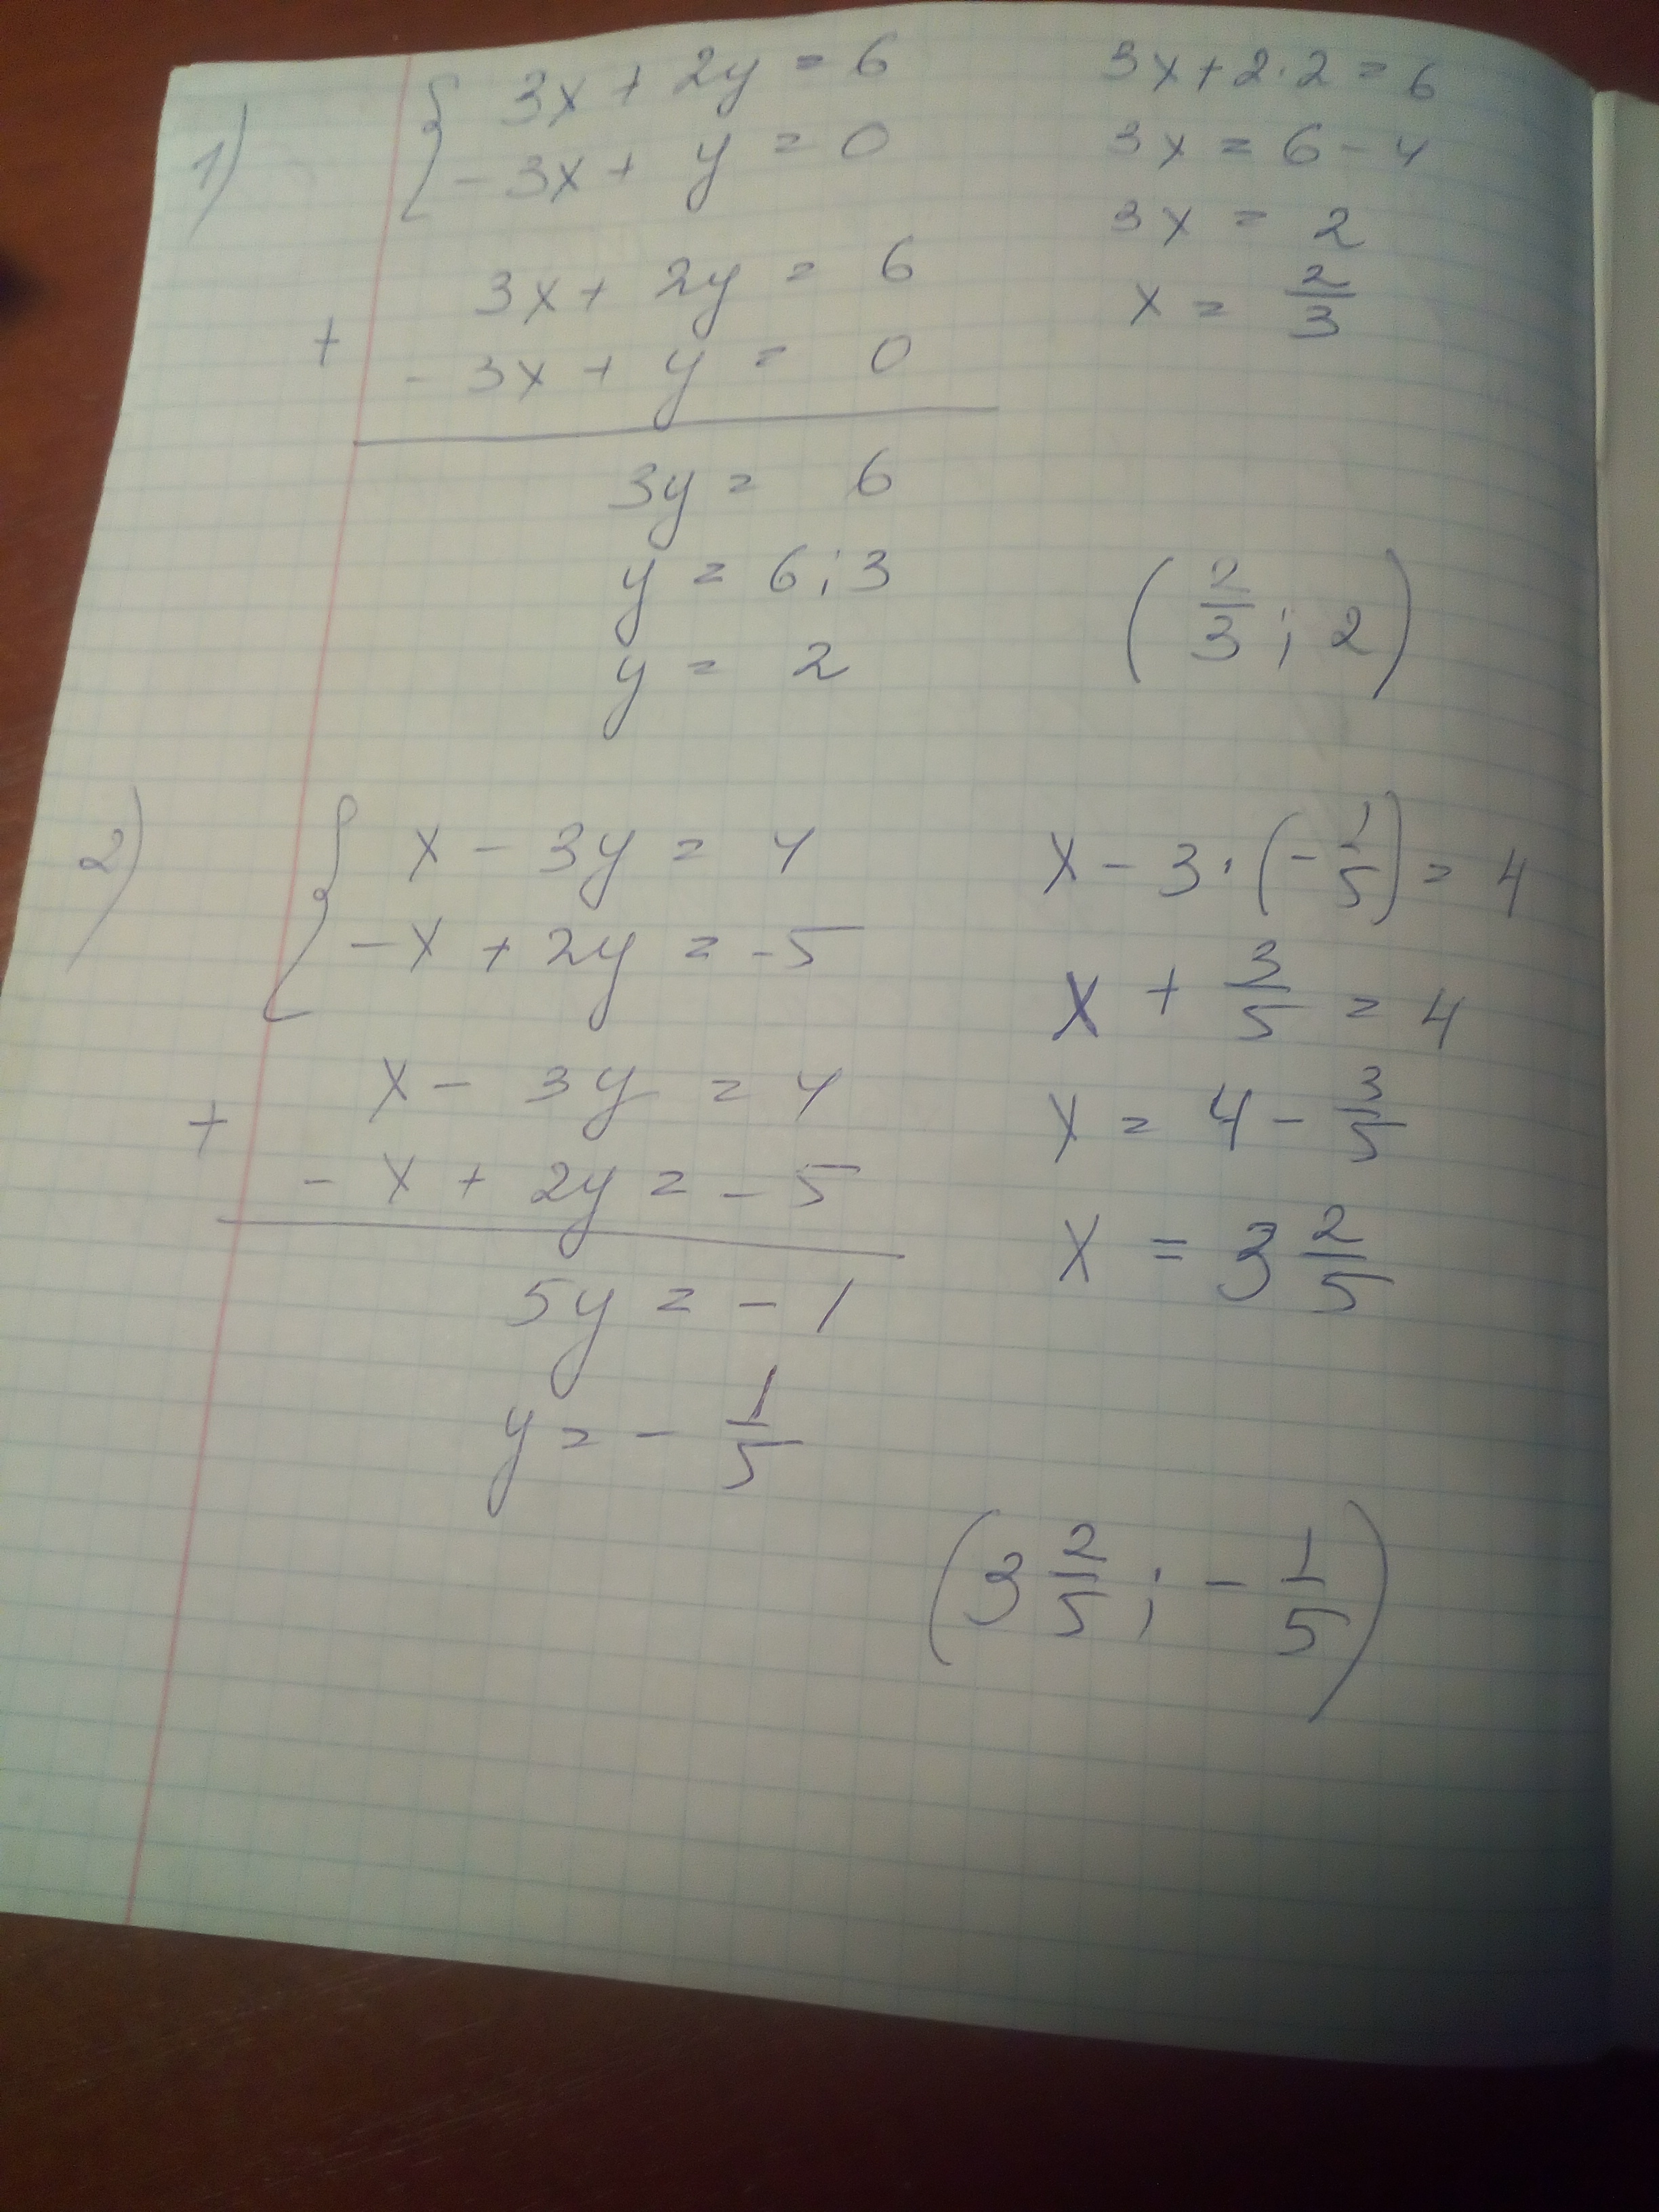 1) { 3x + 2y = 6
-3x + y = 0
+ 3x + 2y = 6
-3x + y = 0
3y = 6
y = 6 : 3
y = 2
3x + 2 · 2 = 6
3x = 6 - 4
3x = 2
x = 2/3
(2/3 ; 2)
2) { x - 3y = 4
-x + 2y = -5
+ x - 3y = 4
-x + 2y = -5
5y = -1
y = - 1/5
x - 3 · (- 1/5) = 4
x + 3/5 = 4
x = 4 - 3/5
x = 3 2/5
(3 2/5 ; - 1/5)